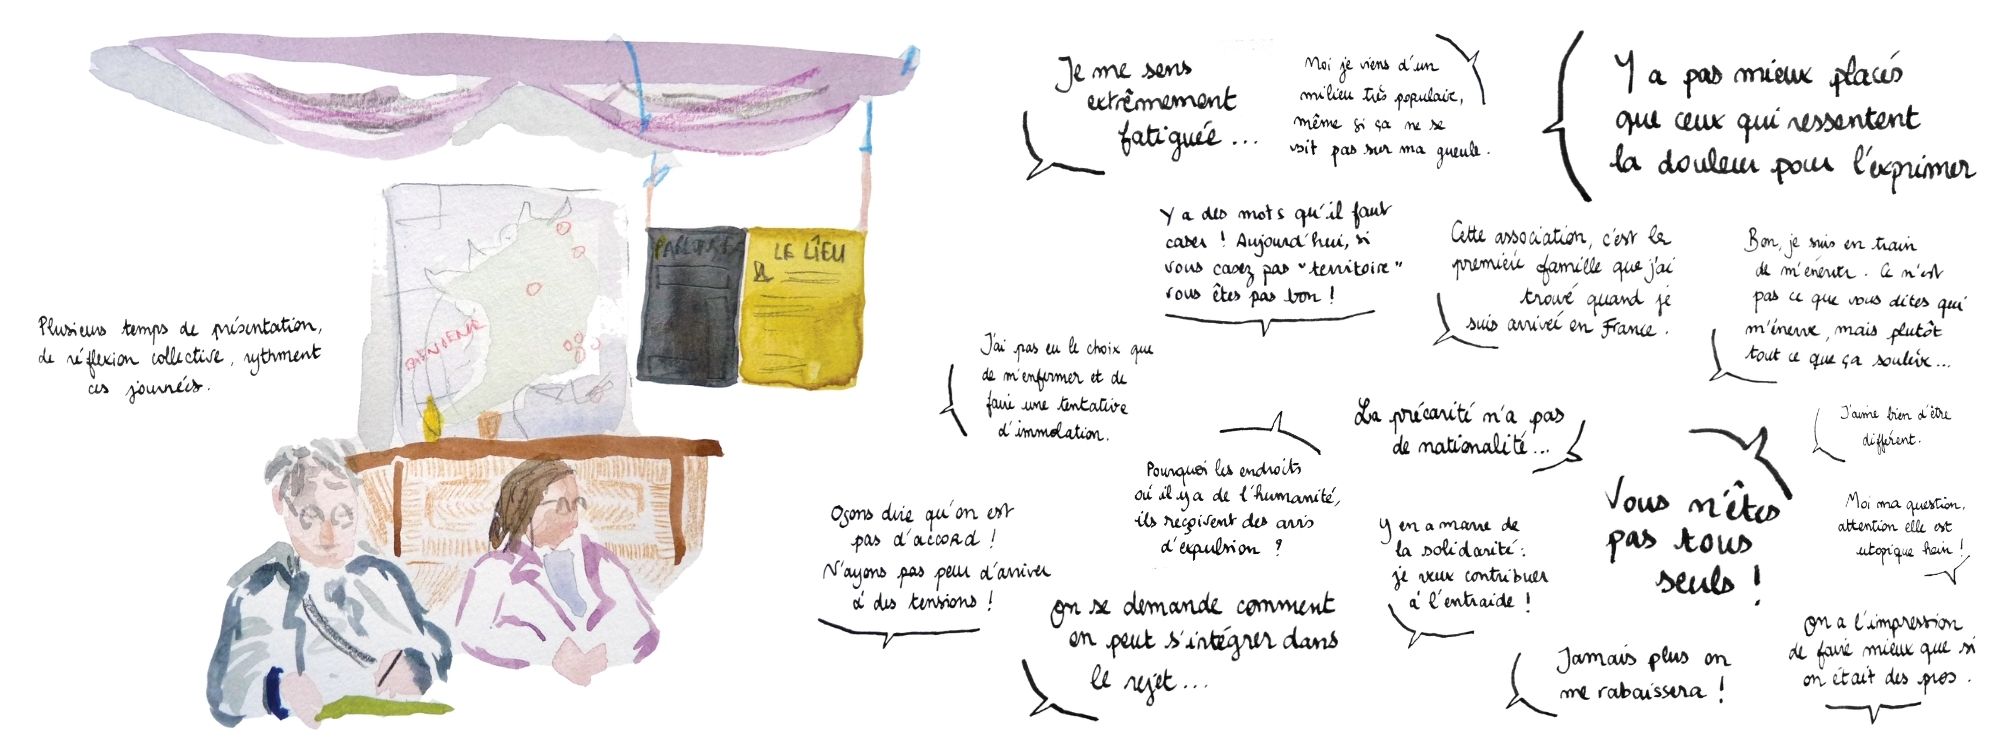 Plusieurs temps de présentation,
de réflexion collective, rythment
ces journées.
BIENVENUE
LE LIEU
Je me sens
extrêmement
fatiguée...
Moi je viens d'un
milieu très populaire,
même si ça ne se
voit pas sur ma gueule.
Y a pas mieux placés
que ceux qui ressentent
la douleur pour l'exprimer
Y a des mots qu'il faut
caser ! Aujourd'hui, si
vous casez pas "territoire"
vous êtes pas bon !
Cette association, c'est la
première famille que j'ai
trouvé quand je
suis arrivée en France.
Bon, je suis en train
de m'énerver. Ce n'est
pas ce que vous dites qui
m'énerve, mais plutôt
tout ce que ça soulève...
J'ai pas eu le choix que
de m'enfermer et de
faire une tentative
d'immolation.
La précarité n'a pas
de nationalité...
J'aime bien d'être
différent.
Pourquoi les endroits
où il y a de l'humanité,
ils reçoivent des avis
d'expulsion ?
Vous n'êtes
pas tous
seuls !
Moi ma question,
attention elle est
utopique hein !
Osons dire qu'on est
pas d'accord !
N'ayons pas peur d'arriver
à des tensions !
Y en a marre de
la solidarité :
je veux contribuer
à l'entraide !
On se demande comment
on peut s'intégrer dans
le rejet...
Jamais plus on
me rabaissera !
On a l'impression
de faire mieux que si
on était des pros.